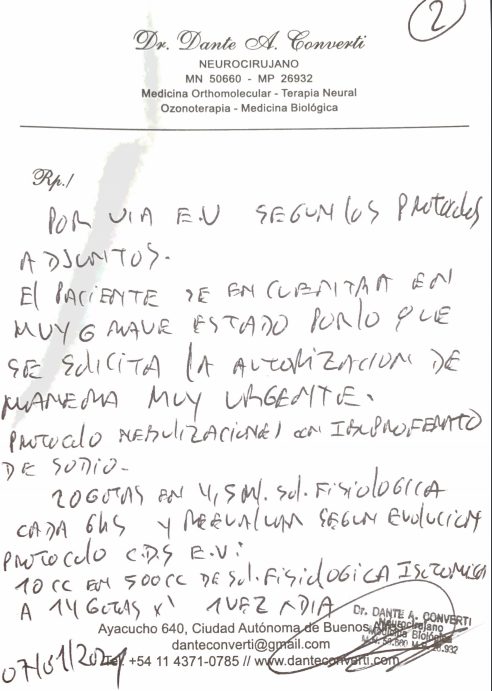 2
Dr. Dante A. Converti
NEUROCIRUJANO
MN 50660 - MP 26932
Medicina Orthomolecular - Terapia Neural
Ozonoterapia - Medicina Biológica
Rp./
POR VIA E.V SEGUN LOS PROTOCOLOS
ADJUNTOS.
El PACIENTE SE ENCUENTRA EN
MUY GRAVE ESTADO POR LO QUE
SE SOLICITA LA AUTORIZACION DE
MANERA MUY URGENTE.
PROTOCOLO NEBULIZACIONES CON IBUPROFENATO
DE SODIO.
20 GOTAS EN 4,5 Ml. Sol. FISIOLOGICA
CADA 6 HS Y REEVALUAR SEGUN EVOLUCION
PROTOCOLO C.D.S E.V:
10 CC EN 500 CC DE Sol. FISIOLOGICA ISOTONICA
A 14 GOTAS X' 1 VEZ X DIA
Dr. DANTE A. CONVERTI
Neurocirujano
Medicina Biológica
Ayacucho 640, Ciudad Autónoma de Buenos Aires
danteconverti@gmail.com
Tel. +54 11 4371-0785 // www.danteconverti.com
07/01/2021